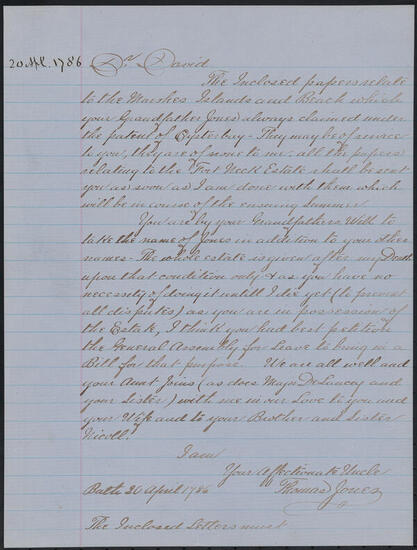 20 Apl. 1786
Dr. David
The Inclosed papers relate
to the Marshes Islands and Beach which
your Grandfather Jones always claimed under
the patent of Oysterbay - They may be of service
to you, they are of none to me, all the papers
relating to the Fort Neck Estate shall be sent
you as soon as I am done with them which
will be in course of the ensuing Summer
You are by your Grandfathers Will to
take the name of Jones in addition to your other
names - The whole estate is given after my Death
upon that condition only & as you have no
necessity of doing it untill I die yet (to prevent
all disputes) as you are in possession of
the Estate, I think you had best petition
the General Assembly for Leave to bring in a
Bill for that purpose. We are all well and
your Aunt joins (as does Major DeLancey and
your Sister) with me in our Love to you and
your Wife and to your Brother and Sister
Nicoll.
I am
Your Affectionate Uncle
Bath 20 April 1786
Thomas Jones
The Inclosed Letters must